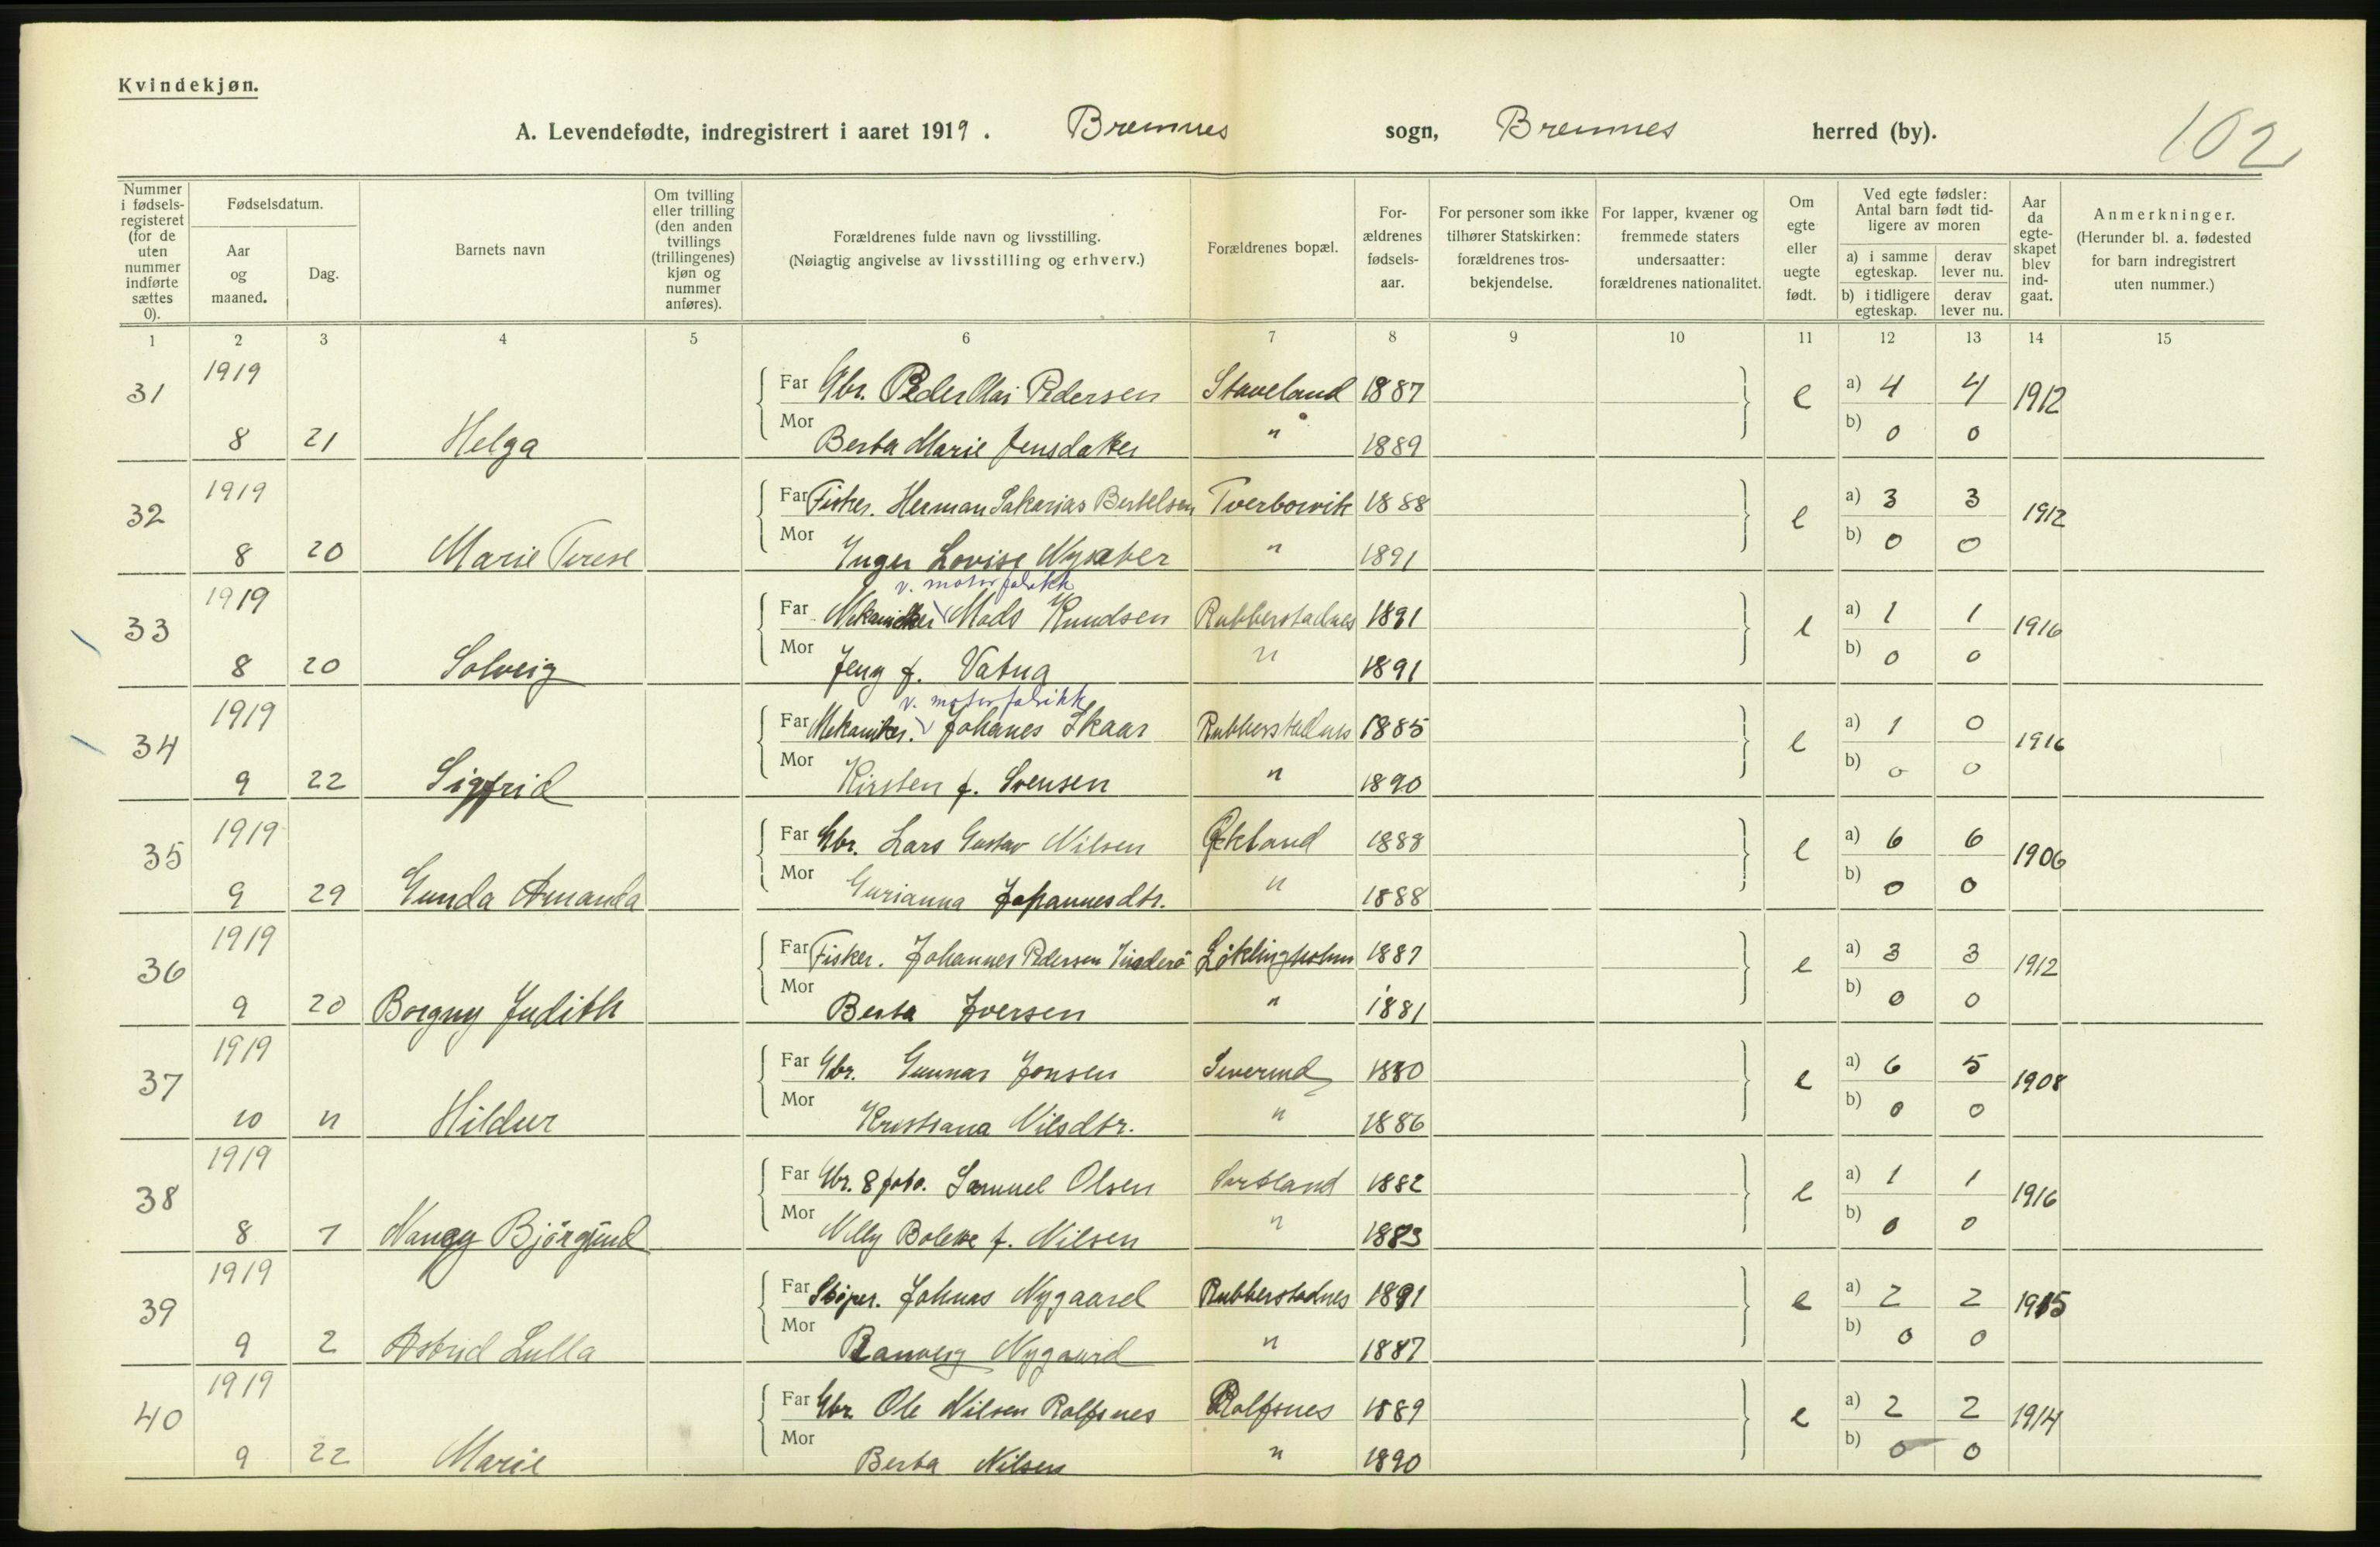 Kvindekjøn.
A. Levendefødte, indregistrert i aaret 1919. Bremnes sogn, Bremnes herred (by). 102
Nummer i fødsels-registeret (for de uten nummer indførte sættes 0).
Fødselsdatum.
Aar og maaned.
Dag.
Barnets navn
Om tvilling eller trilling (den anden tvillings (trillingenes) kjøn og nummer anføres).
Forældrenes fulde navn og livsstilling.
(Nøiagtig angivelse av livsstilling og erhverv.)
Forældrenes bopæl.
For-ældrenes fødsels-aar.
For personer som ikke tilhører Statskirken: forældrenes tros-bekjendelse.
For lapper, kvæner og fremmede staters undersaatter: forældrenes nationalitet.
Om egte eller uegte født.
Ved egte fødsler: Antal barn født tid-ligere av moren
a) i samme egteskap. derav lever nu.
b) i tidligere egteskap. derav lever nu.
Aar da egte-skapet blev ind-gaat.
Anmerkninger.
(Herunder bl. a. fødested for barn indregistrert uten nummer.)
1 2 3 4 5 6 7 8 9 10 11 12 13 14 15
31 1919 Far Gbr. Peder Olai Pedersen Staveland 1887 e a) 4 4 1912
8 21 Helga Mor Berta Marie Jensdatter " 1889 b) 0 0
32 1919 Far Fisker. Herman Sakarias Bertelsen Tverborvik 1888 e a) 3 3 1912
8 20 Marie Terese Mor Inger Lovise " 1891 b) 0 0
v. motorfabrikk
33 1919 Far Mekaniker Mads Knudsen Rubbestadnes 1891 e a) 1 1 1916
8 20 Solveig Mor Jeny f. Vatna " 1891 b) 0 0
v. motorfabrikk
34 1919 Far Mekaniker. Johanes Skaar Rubberstadnes 1885 e a) 1 0 1916
9 22 Sigfrid Mor Kirsten f. Svensen " 1890 b) 0 0
35 1919 Far Gbr. Lars Gustav Nilsen Økland 1888 e a) 6 6 1906
9 29 Gunda Amanda Mor Gurianna Johannesdtr. " 1888 b) 0 0
36 1919 Far Fisker. Johannes Pedersen Løklingholm 1887 e a) 3 3 1912
9 20 Borgny Judith Mor Berta Iversen " 1881 b) 0 0
37 1919 Far Gbr. Gunnar Jonsen 1880 e a) 6 5 1908
10 11 Hildur Mor Kristiana Nilsdtr. " 1886 b) 0 0
38 1919 Far Gbr. Samuel Olsen Sortland 1882 e a) 1 1 1916
8 7 Nancy Bjørgund Mor Nilly Bolette f. Nilsen " 1883 b) 0 0
39 1919 Far Støper. Johnas Nygaard Rubberstadnes 1891 e a) 2 2 1915
9 2 Astrid Lulla Mor Ranveig Nygaard " 1887 b) 0 0
40 1919 Far Gbr. Ole Nilsen Rolfsnes Rolfsnes 1889 e a) 2 2 1914
9 22 Marie Mor Berta Nilsen " 1890 b) 0 0